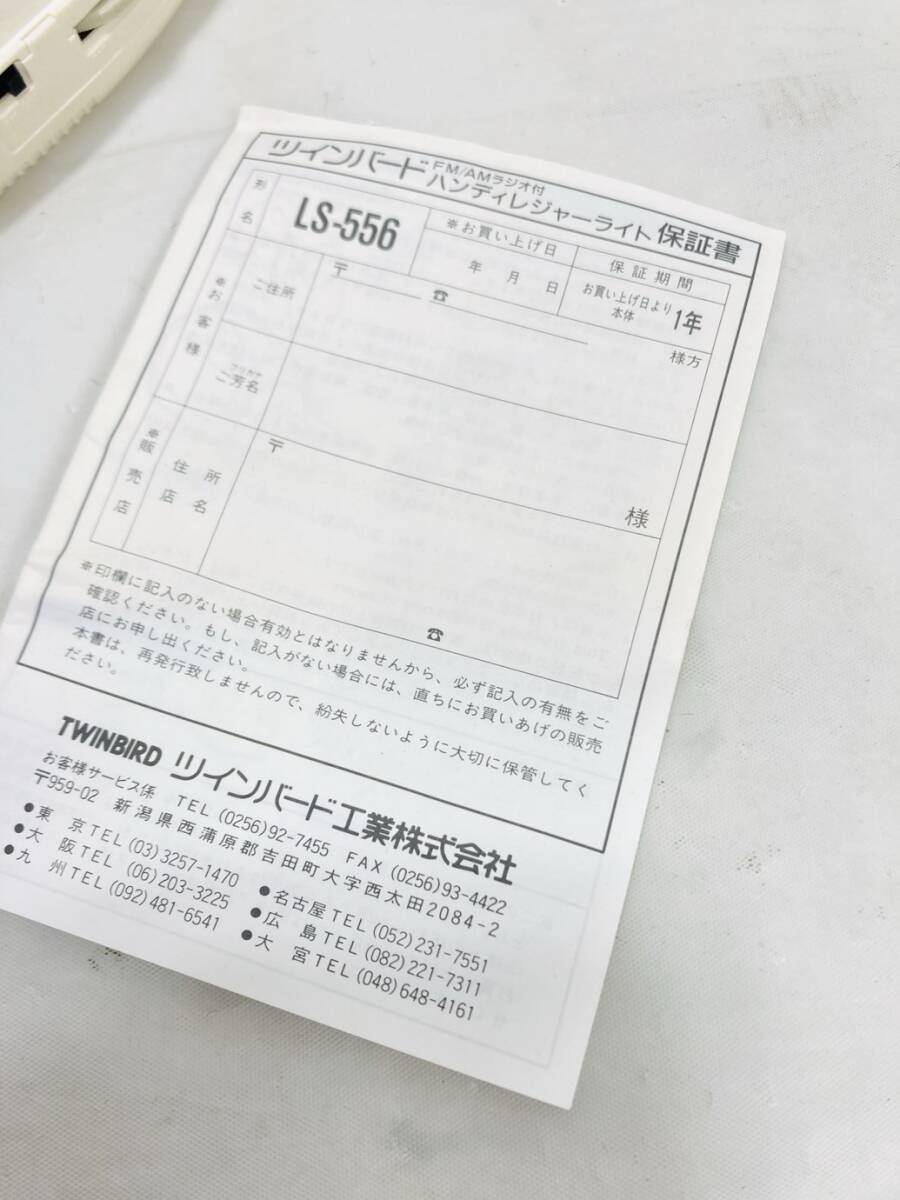 ツインバード FM/AMラジオ付 ハンディレジャーライト 保証書
形名 LS-556
※お買い上げ日
年 月 日
保証期間
お買い上げ日より
本体 1年
※お客様
ご住所
〒
☎
様方
フリガナ
ご芳名
様
※販売店
住所
店名
〒
☎
※印欄に記入のない場合有効とはなりませんから、必ず記入の有無をご
確認ください。もし、記入がない場合には、直ちにお買いあげの販売
店にお申し出ください。
本書は、再発行致しませんので、紛失しないように大切に保管してく
ださい。
TWINBIRD ツインバード工業株式会社
お客様サービス係 TEL (0256)92-7455 FAX (0256)93-4422
〒959-02 新潟県西蒲原郡吉田町大字西太田2084-2
●東京TEL (03)3257-1470 ●名古屋TEL (052)231-7551
●大阪TEL (06)203-3225 ●広島TEL (082)221-7311
●九州TEL (092)481-6541 ●大宮TEL (048)648-4161